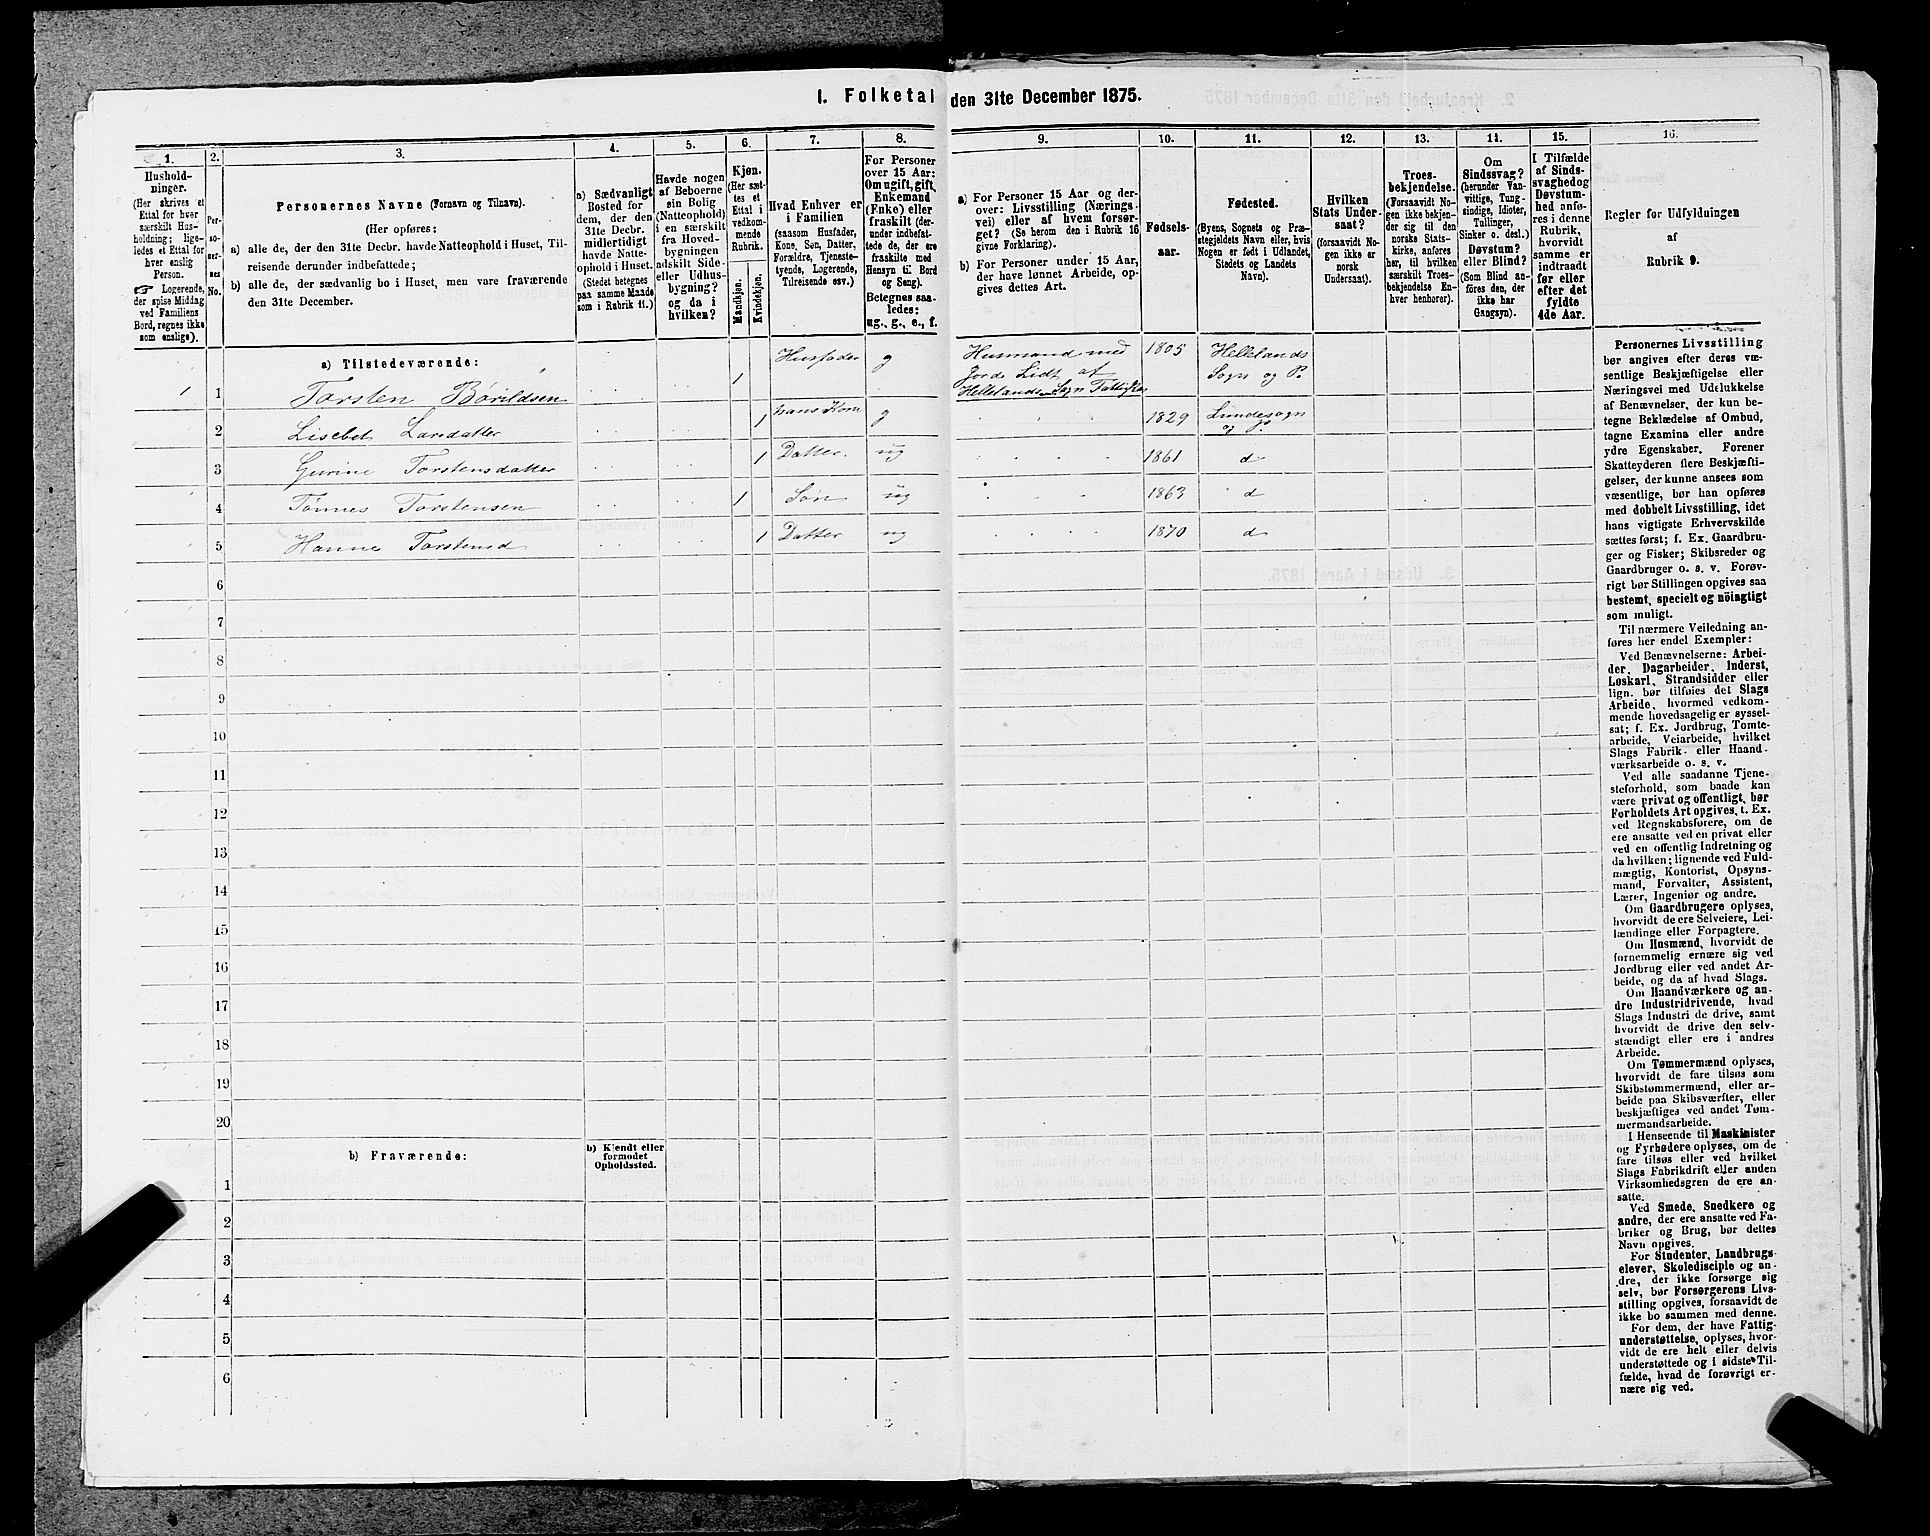 I. Folketal den 31te December 1875.
1.
2.
3.
4.
5.
6.
7.
8.
9.
10.
11.
12.
13.
14.
15.
16.
Hushold-
ninger.
(Her skrives et
Ettal for hver
særskilt Hus-
holdning; lige-
ledes et Ettal for
hver enslig
Person.
☞ Logerende,
der spise Middag
ved Familiens
Bord, regnes ikke
som enslige).
Per-
so-
ner-
nes
No.
Personernes Navne (Fornavn og Tilnavn).
(Her opføres:
a) alle de, der den 31te Decbr. havde Natteophold i Huset, Til-
reisende derunder indbefattede;
b) alle de, der sædvanlig bo i Huset, men vare fraværende
den 31te December.
a) Sædvanligt
Bosted for
dem, der den
31te Decbr.
midlertidigt
havde Natte-
ophold i Huset.
(Stedet betegnes
paa samme Maade
som i Rubrik 11.)
Havde nogen
af Beboerne
sin Bolig
(Natteophold)
i en særskilt
fra Hoved-
bygningen
adskilt Side-
eller Udhus-
bygning?
og da i
hvilken?
Kjøn.
(Her sæt-
tes et
Ettal i
vedkom-
mende
Rubrik.
Mandkjøn.
Kvindekjøn.
Hvad Enhver er
i Familien
(saasom Husfader,
Kone, Søn, Datter,
Forældre, Tjeneste-
tyende, Logerende,
Tilreisende osv.)
For Personer
over 15 Aar:
Om ugift, gift,
Enkemand
(Enke) eller
fraskilt (der-
under indbefat-
tede de, der ere
fraskilte med
Hensyn til Bord
og Seng).
Betegnes saa-
ledes:
ug., g., e., f.
a) For Personer 15 Aar og der-
over: Livsstilling (Nærings-
vei) eller af hvem forsør-
get? (Se herom den i Rubrik 16
givne Forklaring).
b) For Personer under 15 Aar,
der have lønnet Arbeide, op-
gives dettes Art.
Fødsels-
aar.
Fødested.
(Byens, Sognets og Præ-
stegjeldets Navn eller, hvis
Nogen er født i Udlandet,
Stedets og Landets
Navn).
Hvilken
Stats Under-
saat?
(forsaavidt No-
gen ikke er
norsk
Undersaat).
Troes-
bekjendelse.
(Forsaavidt No-
gen ikke bekjen-
der sig til den
norske Stats-
kirke, anføres
her, til hvilken
særskilt Troes-
bekjendelse En-
hver henhorer).
Om
Sindssvag?
(herunder Van-
vittige, Tung-
sindige, Idioter,
Tullinger,
Sinker o. desl.)
Døvstum?
eller Blind?
(Som Blind an-
føres den, der
ikke har
Gangsyn).
I Tilfælde
af Sinds-
svaghed og
Døvstum-
hed anfø-
res i denne
Rubrik,
hvorvidt
samme er
indtraadt
før eller
efter det
fyldte
4de Aar.
Regler for Udfyldningen
af
Rubrik 9.
a) Tilstedeværende:
1 1 Torsten Bórildsen 1 Husfader g Husmand med Jord Lidt af Hellelands Sogn Fattigkas 1805 Hellelands Sogn og P.
2 Lisebet Larsdatter 1 hans Kone g 1829 Lundesogn og P.
3 Gurine Torstensdatter 1 Datter. ug 1861 d
4 Tónnes Torstensen 1 Søn ug 1863 d
5 Hanne Torstensd 1 Datter ug 1870 d
6
7
8
9
10
11
12
13
14
15
16
17
18
19
20
b) Fraværende:
b) Kjendt eller
formodet
Opholdssted.
1
2
3
4
5
6
Personernes Livsstilling
bør angives efter deres væ-
sentlige Beskjæftigelse eller
Næringsvei med Udelukkelse
af Benævnelser, der kun be-
tegne Beklædelse af Ombud,
tagne Examina eller andre
ydre Egenskaber. Forener
Skatteyderen flere Beskjæfti-
gelser, der kunne ansees som
væsentlige, bør han opføres
med dobbelt Livsstilling, idet
hans vigtigste Erhvervskilde
sættes først; f. Ex. Gaardbru-
ger og Fisker; Skibsreder og
Gaardbruger o. s. v. Forøv-
rigt bør Stillingen opgives saa
bestemt, specielt og nöiagtigt
som muligt.
Til nærmere Veiledning an-
føres her endel Exempler:
Ved Benævnelserne: Arbei-
der, Dagarbeider, Inderst,
Løskarl, Strandsidder eller
lign. bør tilføies det Slags
Arbeide, hvormed vedkom-
mende hovedsagelig er syssel-
sat; f. Ex. Jordbrug, Tomte-
arbeide, Veiarbeide, hvilket
Slags Fabrik- eller Haand-
værksarbeide o. s. v.
Ved alle saadanne Tjene-
steforhold, som baade kan
være privat og offentligt, bør
Forholdets Art opgives, t. Ex.
ved Regnskabsførere, om de
ere ansatte ved en privat eller
ved en offentlig Indretning og
da hvilken; lignende ved Fuld-
mægtig, Kontorist, Opsyns-
mand, Forvalter, Assistent,
Lærer, Ingeniør og andre.
Om Gaardbrugere oplyses,
hvorvidt de ere Selveiere, Lei-
lændinge eller Forpagtere.
Om Husmænd, hvorvidt de
fornemmelig ernære sig ved
Jordbrug eller ved andet Ar-
beide, og da af hvad Slags.
Om Haandværkere og an-
dre Industridrivende, hvad
Slags Industri de drive, samt
hvorvidt de drive den selv-
stændigt eller ere i andres
Arbeide.
Om Tømmermænd oplyses,
hvorvidt de fare tilsøs som
Skibstømmermænd, eller ar-
beide paa Skibsværfter, eller
beskjæftiges ved andet Tøm-
mermandsarbeide.
I Henseende til Maskinister
og Fyrbødere oplyses, om de
fare tilsøs eller ved hvilket
Slags Fabrikdrift eller anden
Virksomhedsgren de ere an-
satte.
Ved Smede, Snedkere og
andre, der ere ansatte ved Fa-
briker og Brug, bør dettes
Navn opgives.
For Studenter, Landbrugs-
elever, Skoledisciple og an-
dre, der ikke forsørge sig
selv, bør Forsørgerens Livs-
stilling opgives, forsaavidt de
ikke bo sammen med denne.
For dem, der have Fattig-
understøttelse, oplyses, hvor-
vidt de ere helt eller delvis
understøttede og i sidste Til-
fælde, hvad de forøvrigt er-
nære sig ved.